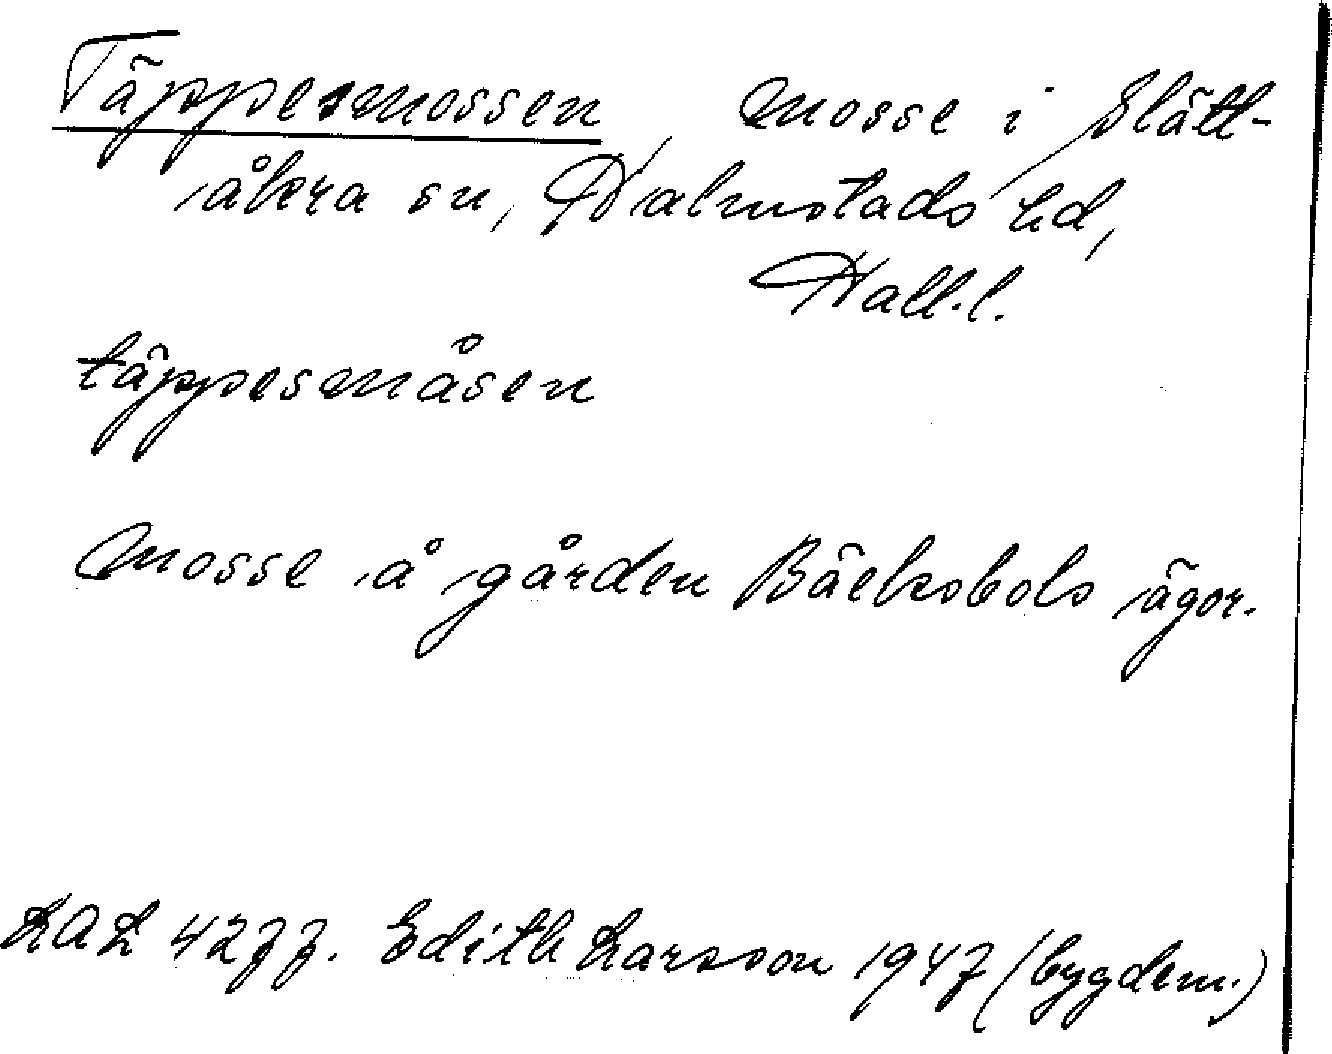 Täppesmossen, mosse i Slätt-
åkra sn, Halmstads hd,
Hall.l.
täppesmåsen
Mosse å gården Bäcksbols ägor.
LAL 4277. Edith Larsson 1947 (bygdem.)